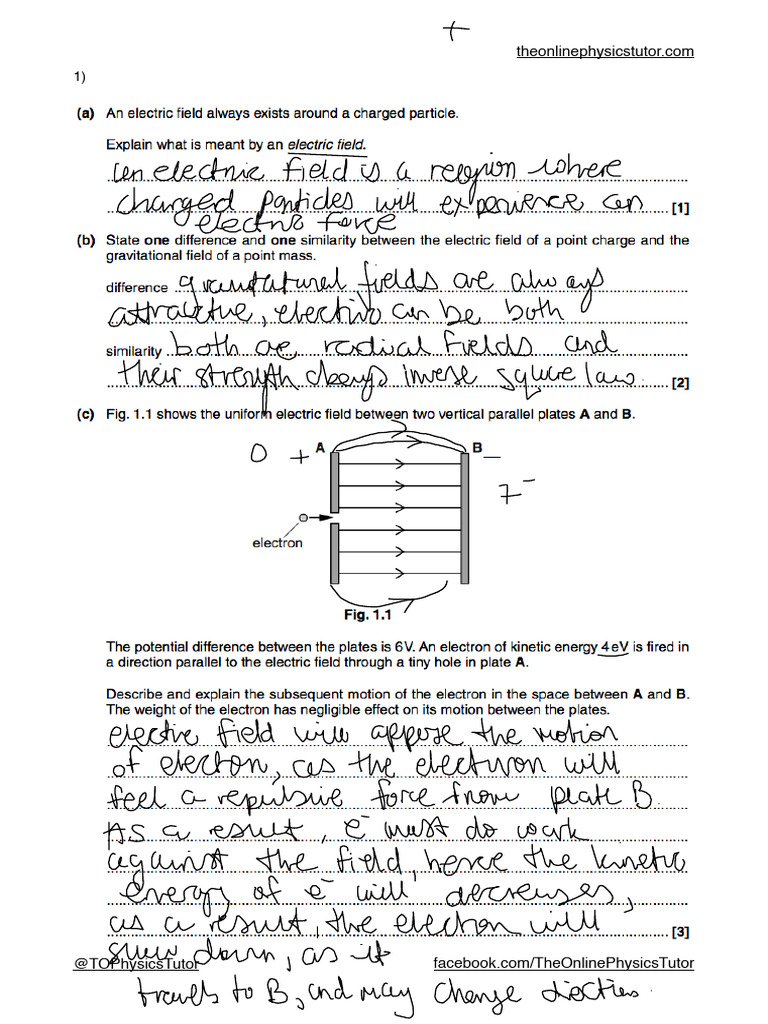 +
theonlinephysicstutor.com
1)
(a) An electric field always exists around a charged particle.
Explain what is meant by an electric field.
an electric field is a region where
charged particles will experience an [1]
electric force
(b) State one difference and one similarity between the electric field of a point charge and the
gravitational field of a point mass.
difference gravitational fields are always
attractive, electric can be both
similarity both are radial fields and
their strength obeys inverse square law. [2]
(c) Fig. 1.1 shows the uniform electric field between two vertical parallel plates A and B.
0 + A B −
7⁻
electron
Fig. 1.1
The potential difference between the plates is 6V. An electron of kinetic energy 4eV is fired in
a direction parallel to the electric field through a tiny hole in plate A.
Describe and explain the subsequent motion of the electron in the space between A and B.
The weight of the electron has negligible effect on its motion between the plates.
electric field will appose the motion
of electon, as the electuron will
feel a repulsive force from plate B.
As a result, e⁻ must do work
against the field, hence the kinetic
energy of e⁻ will decreases,
as a result, the electron will [3]
slow down, as it
@TOPhysicsTutor facebook.com/TheOnlinePhysicsTutor
travels to B, and may change